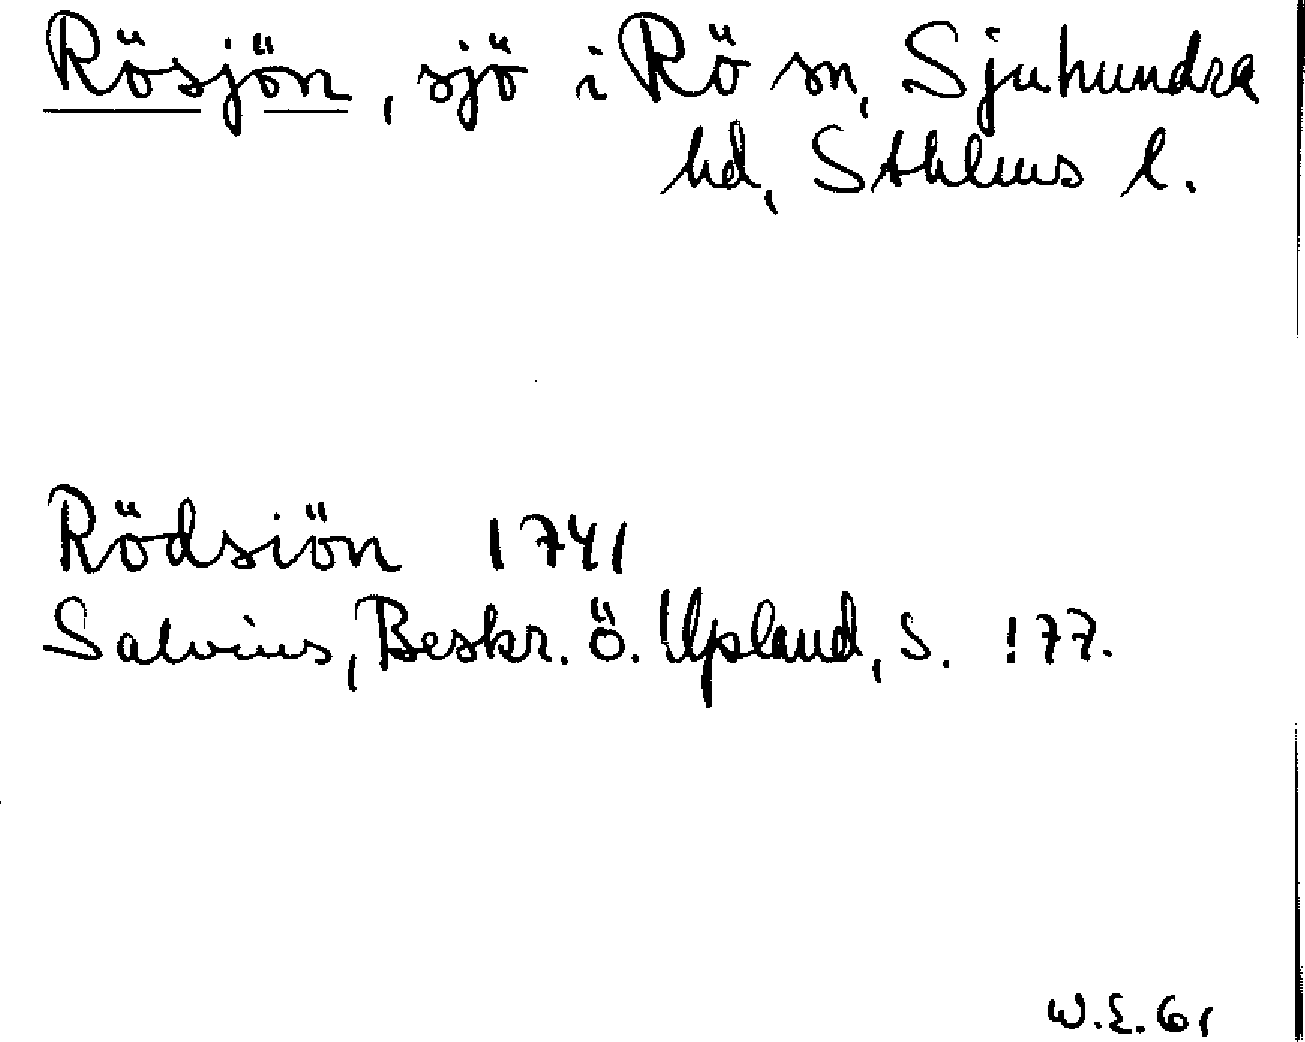 Rösjön, sjö i Rö sn, Sjuhundra
hd, Sthlms l.
Rödsiön 1741
Salvius, Beskr. ö. Upland, S. 177.
W.E. 61